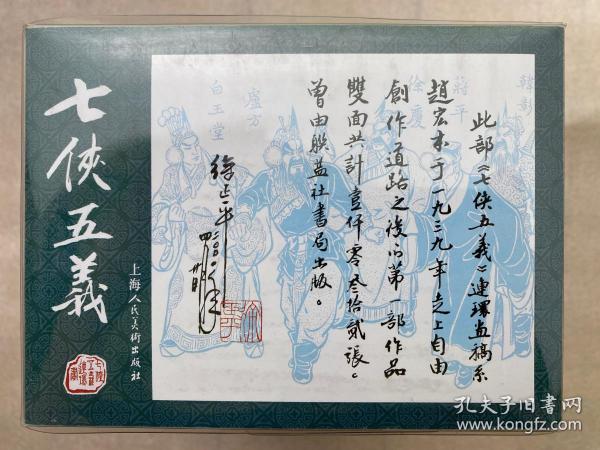 七俠五義
上海人民美術出版社
韓彰
蔣平
徐慶
盧方
白玉堂
此部《七俠五義》連環畫稿系
趙宏本于一九三九年走上自由
創作道路之後的第一部作品
雙面共計壹仟零叁拾貳張。
曾由联益社書局出版。
孔夫子旧书网
www.kongfz.com